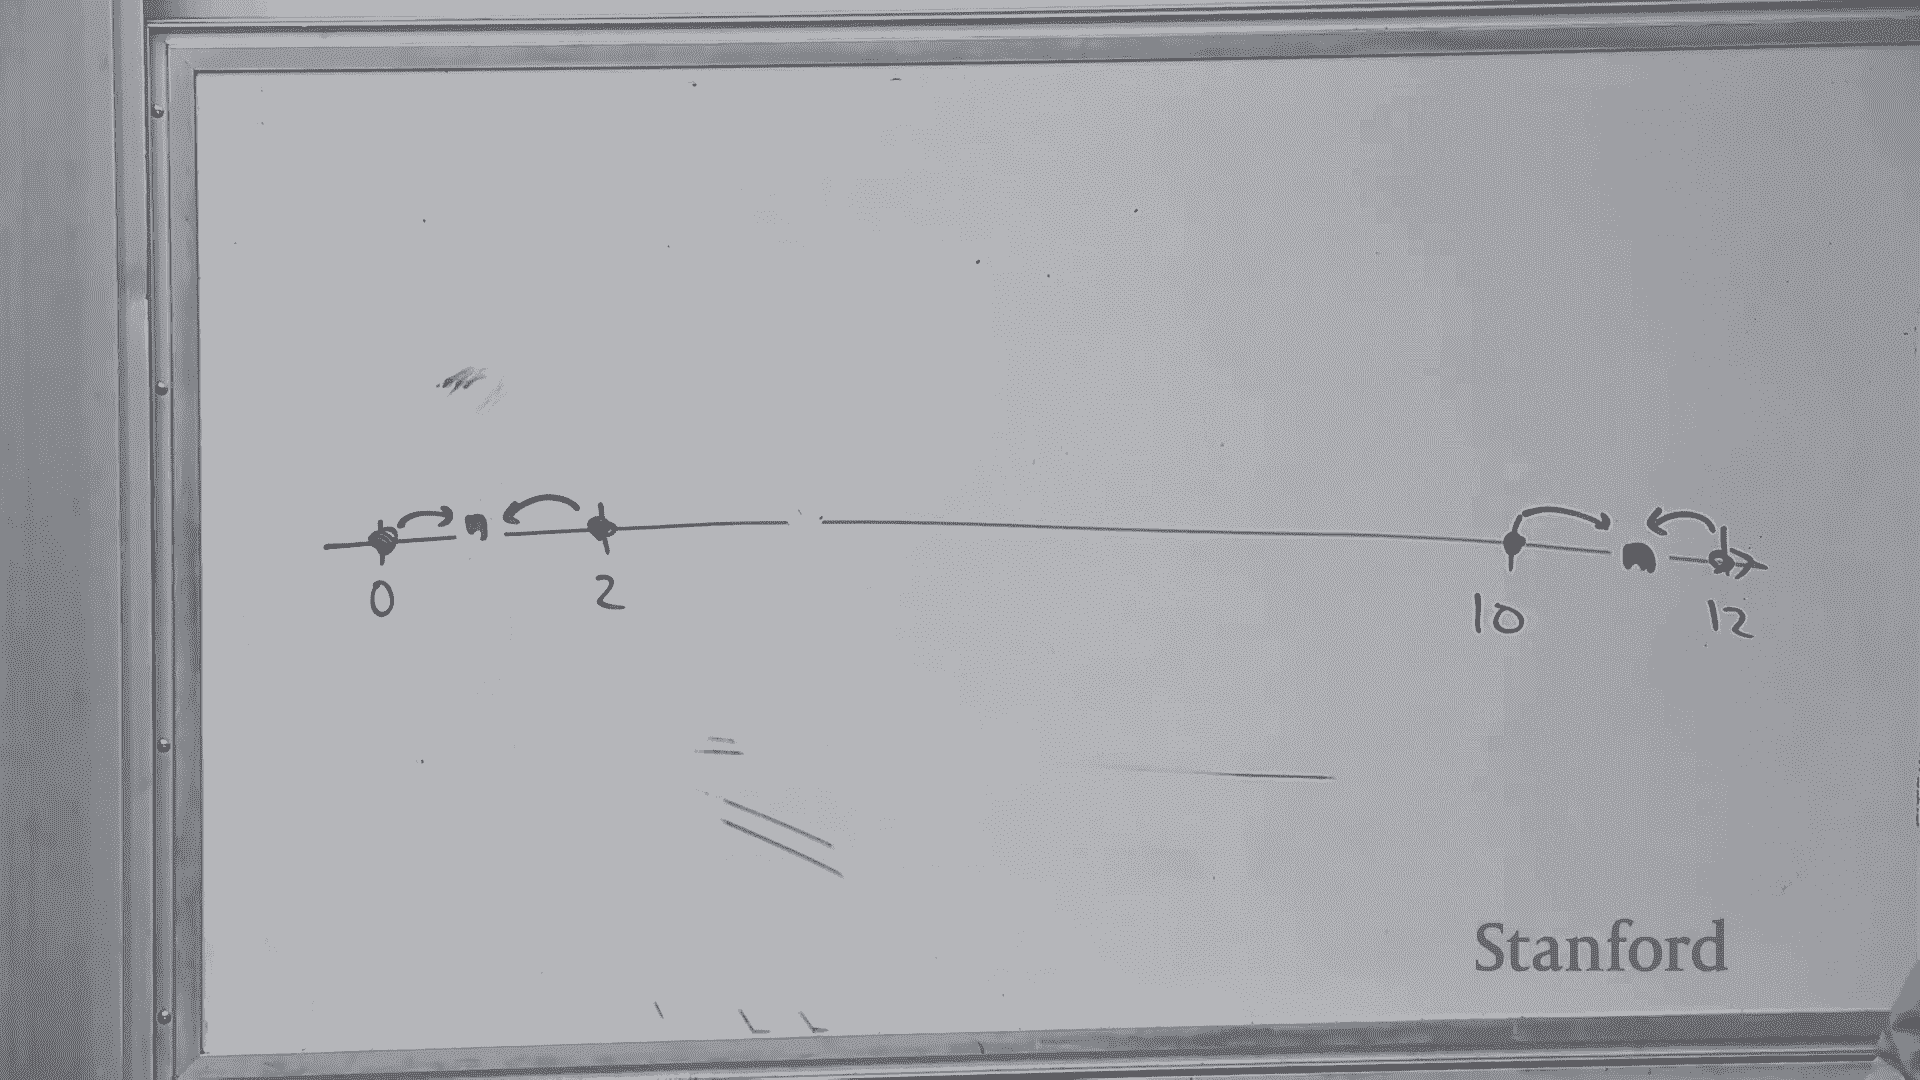 0 2 10 12
Stanford